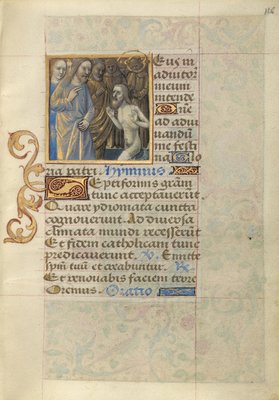 116
Eus in
adiutor
meum
intende
Dne
ad adiu
uandū
me festi
na Glo
ria patri. Hymnus
De septiformis gram
tunc acceperunt
Quare ydiomata cuncta
cognouerunt. Ad diuersa
climata mundi recesserunt
Et fidem catholicam tunc
predicauerunt. V Emitte
spm̄ tuū et creabuntur. R
Et renouabis faciem terre
Oremus. Oratio